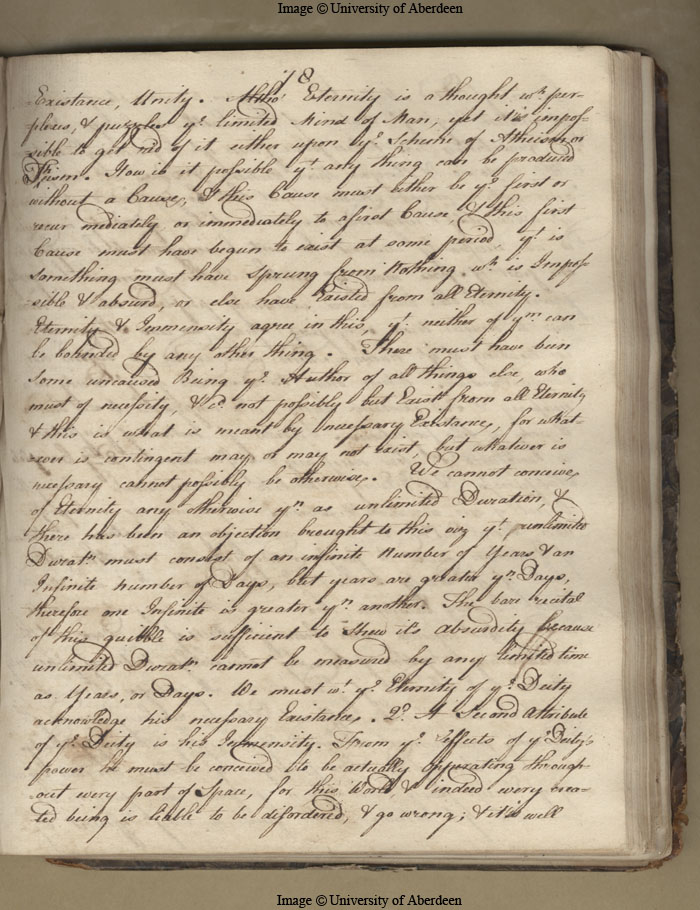 Image © University of Aberdeen
18
Existance, Unity. Altho' Eternity is a thought wh per-
plexes, & puzzles ye limited Mind of Man, yet it is impos-
sible to get rid of it either upon ye Scheme of Atheism or
Theism. How is it possible yt any thing can be produced
without a Cause, & this Cause must either be ye first or
recur mediately or immediately to a first Cause, & this first
Cause must have begun to exist at some period, yt is
something must have sprung from Nothing wh is Impos-
sible & absurd, or else have Existed from all Eternity.
Eternity & Immensity agree in this, yt neither of ym can
be bounded by any other thing. There must have been
some uncaused Being ye Author of all things else, who
must of necessity, & cd not possibly but Exist from all Eternity
& this is what is meant by necessary Existance, for what-
ever is contingent may or may not exist, but whatever is
necessary cannot possibly be otherwise. We cannot conceive
of Eternity any otherwise yn as unlimited Duration, &
there has been an objection brought to this viz yt unlimited
Duratn must consist of an infinite Number of Years & an
Infinite number of Days, but years are greater yn Days,
therefore one Infinite is greater yn another. The bare recital
of this quibble is sufficient to shew it's absurdity because
unlimited Duratn cannot be measured by any limited time
as Years, or Days. We must wt ye Eternity of ye Deity
acknowledge his necessary Existance. 2o A Second Attribute
of ye Deity is his Immensity. From ye effects of ye Deity's
power he must be conceived to be actually opperating through-
out every part of Space, for this World & indeed every crea-
ted being is liable to be disordered, & go wrong; & it's well
Image © University of Aberdeen